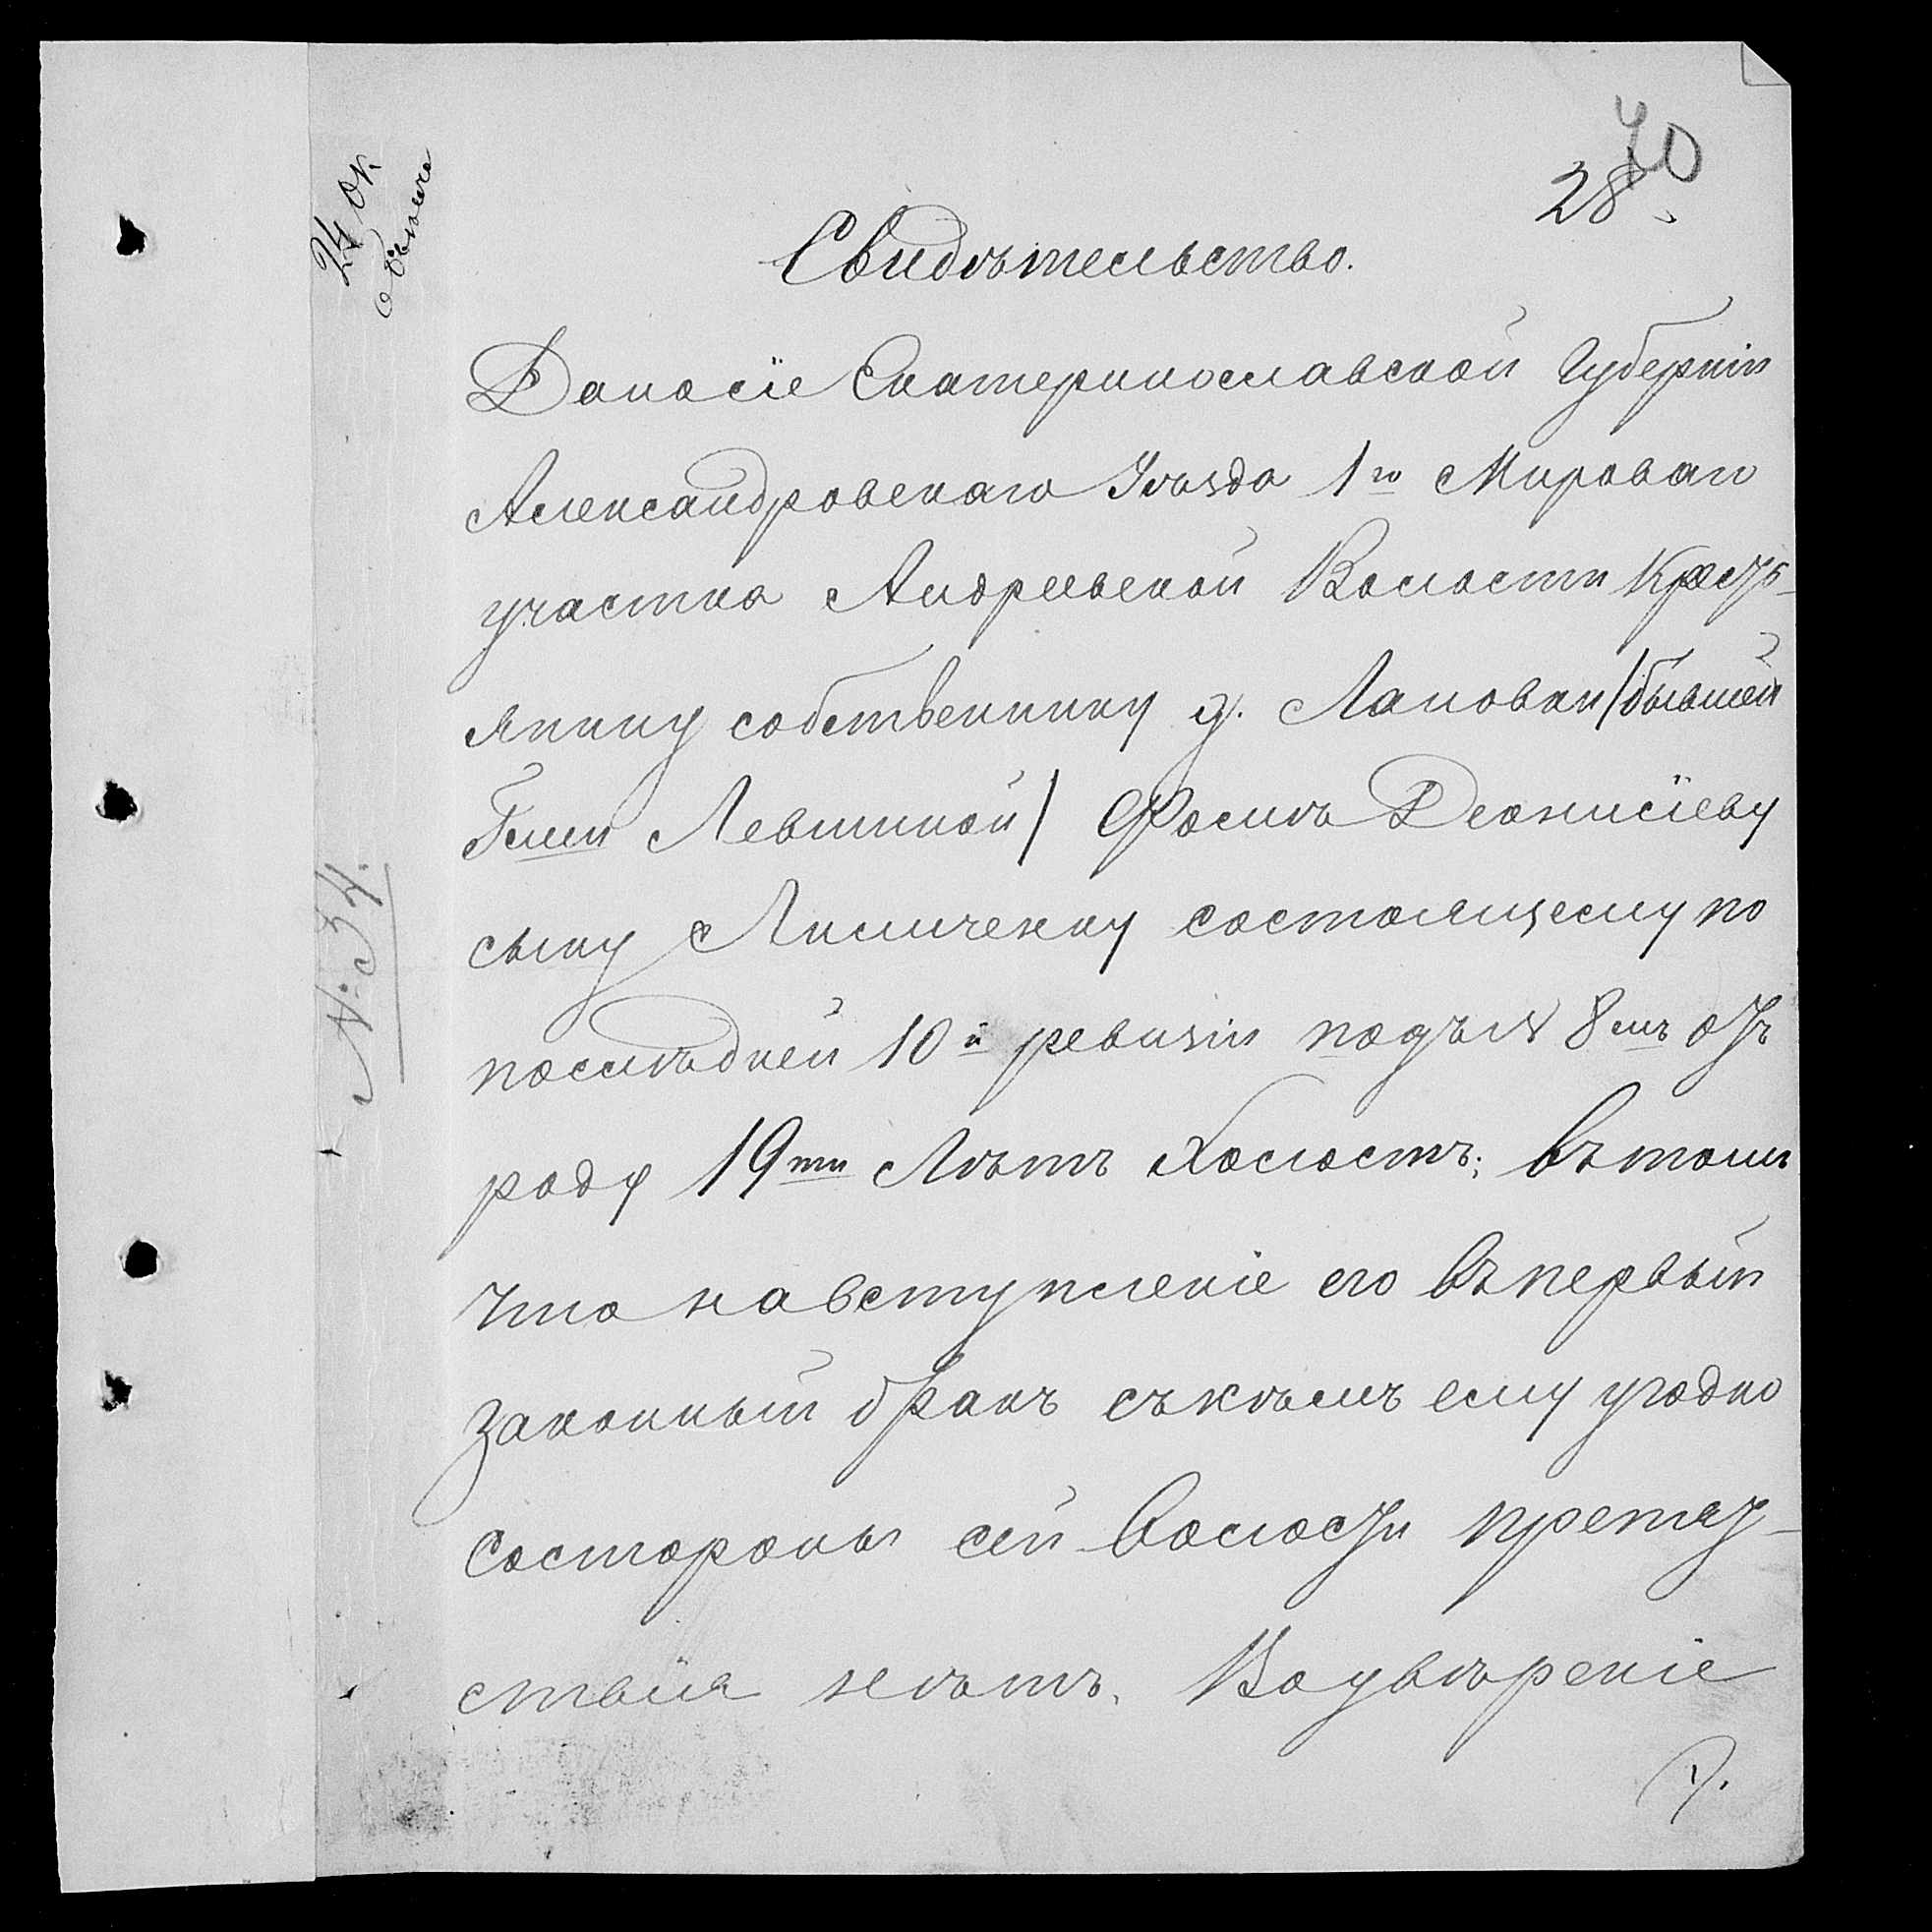 40
28
24 ок
Свидѣтельство.
Дано сіе Екатеринославской Губерніи
Александровскаго Уѣзда 1го Мироваго
участка Андреевской Волости Крестъ-
янину собственнику д. Лановки /бывшей
Гжи Левшиной/ Фомѣ Деонисіеву
сыну Лисиченку состоящему по
послѣдней 10й ревизіи подъ № 8мъ отъ
роду 19ти Лѣтъ Холостъ; въ томъ
что на вступленіе его въ первый
законный бракъ съ кѣмъ ему угодно
со стороны сей волости препят-
ствія нѣтъ. Во увѣреніе
№: 34.